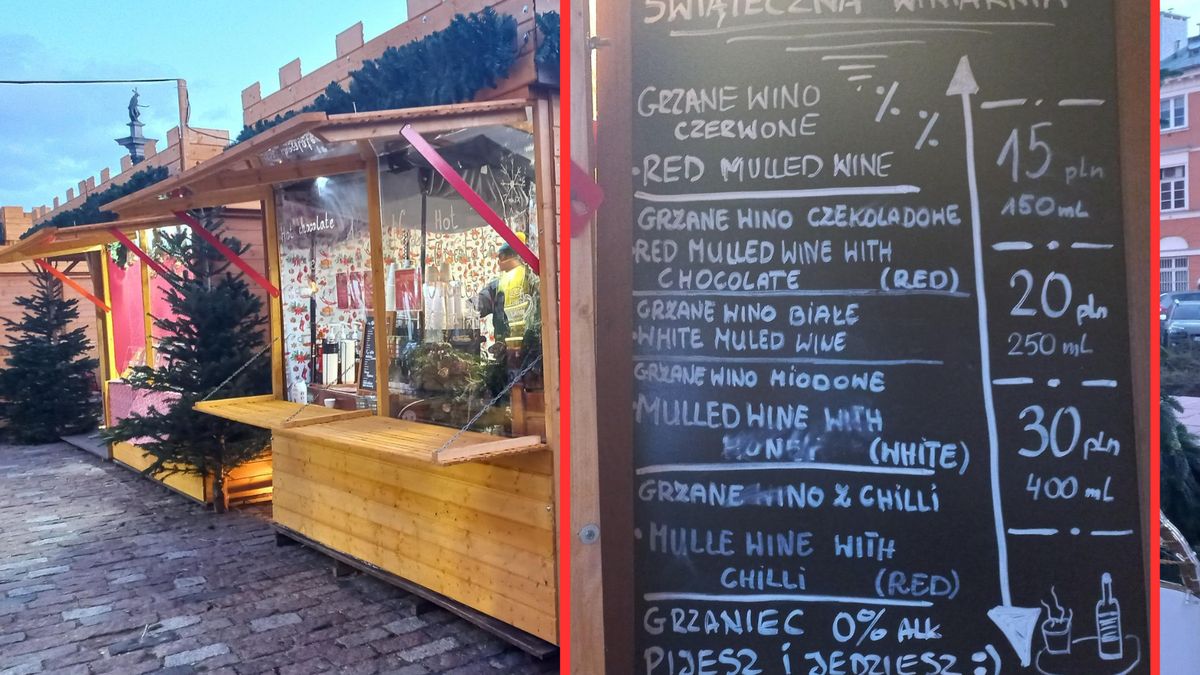 Hot chocolate
Hot
ŚWIĄTECZNA WINIARNIA
GRZANE WINO
CZERWONE
% %
• RED MULLED WINE
GRZANE WINO CZEKOLADOWE
• RED MULLED WINE WITH
CHOCOLATE (RED)
GRZANE WINO BIAŁE
• WHITE MULED WINE
GRZANE WINO MIODOWE
• MULLED WINE WITH
HONEY (WHITE)
GRZANE WINO Z CHILLI
• MULLE WINE WITH
CHILLI (RED)
GRZANIEC 0% ALK
PIJESZ I JEDZIESZ :)
15 pln
150 mL
20 pln
250 mL
30 pln
400 mL